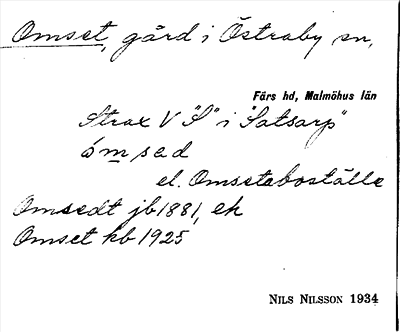 Omset, gård i Östraby sn,
Färs hd, Malmöhus län
Strax V "S" i "Satsarp"
ómsed
el. Omsetaboställe
Omsedt jb 1881, ek
Omset kb 1925
NILS NILSSON 1934